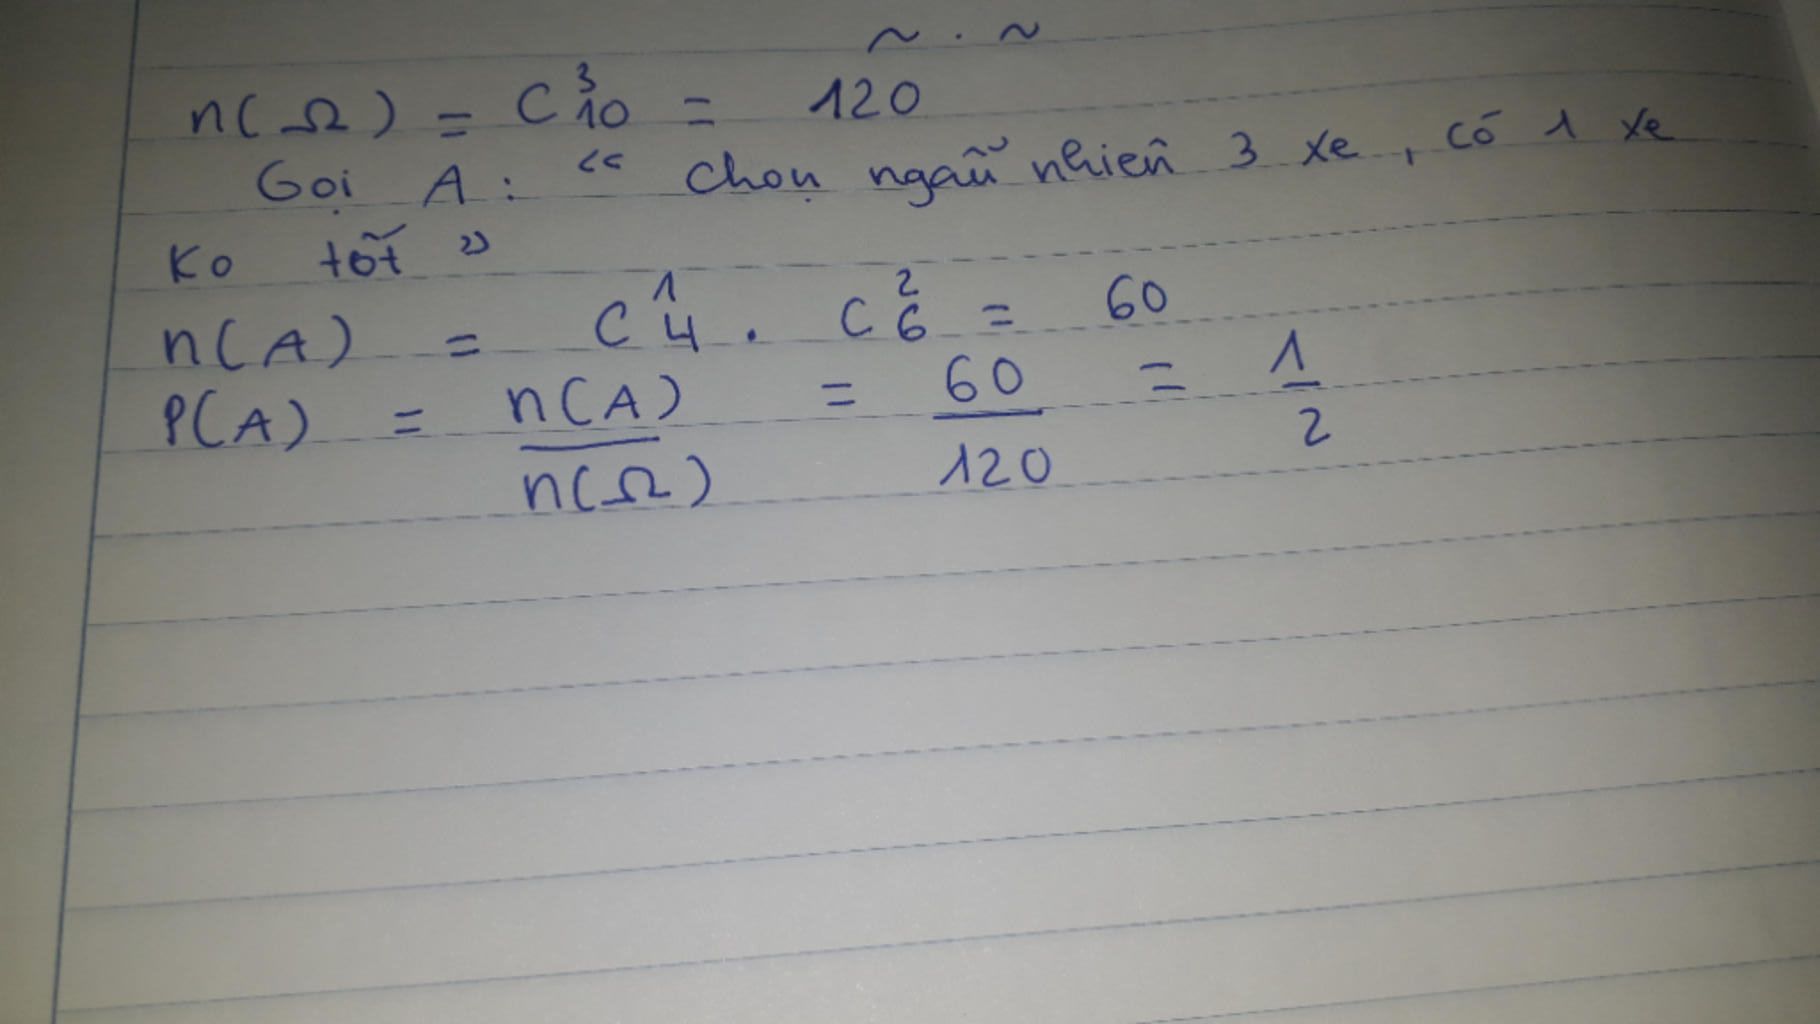 ~ . ~
n(Ω) = C³₁₀ = 120
Gọi A : “ Chọn ngẫu nhiên 3 xe , có 1 xe
Ko tốt ”
n(A) = C¹₄ . C²₆ = 60
P(A) = n(A) / n(Ω) = 60 / 120 = 1 / 2